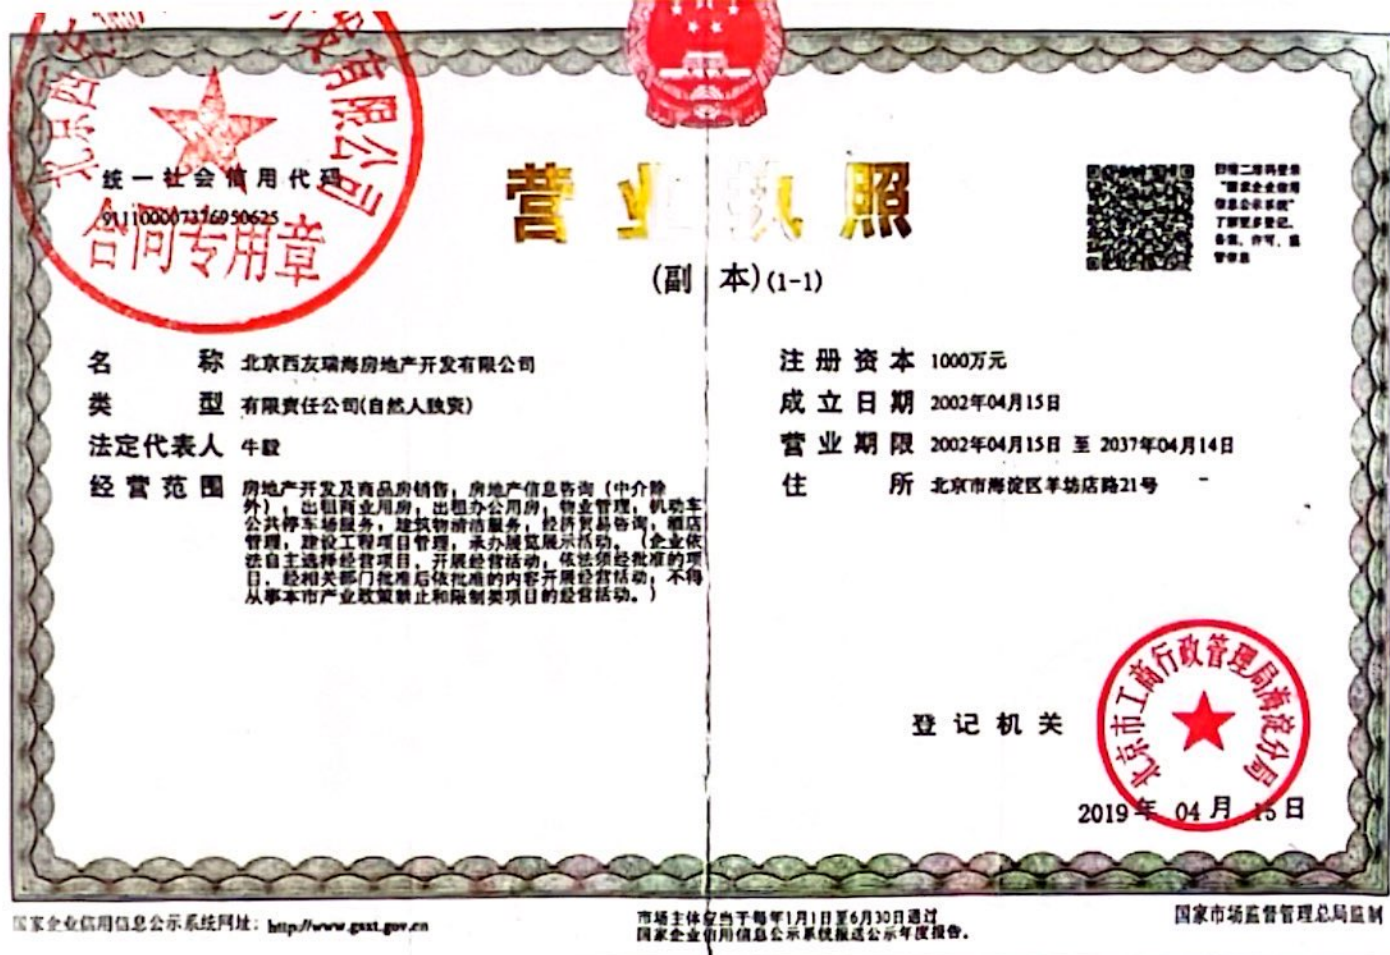 北京西友瑞海房地产开发有限公司
合同专用章
统一社会信用代码
911100007376950625
营业执照
(副 本)(1-1)
扫描二维码登录
“国家企业信用
信息公示系统”
了解更多登记、
备案、许可、监
管信息
名 称 北京西友瑞海房地产开发有限公司
类 型 有限责任公司(自然人独资)
法定代表人 牛毅
经营范围 房地产开发及商品房销售;房地产信息咨询(中介除
外);出租商业用房;出租办公用房;物业管理;机动车
公共停车场服务;建筑物清洁服务;经济贸易咨询;酒店
管理;建设工程项目管理;承办展览展示活动。(企业依
法自主选择经营项目,开展经营活动;依法须经批准的项
目,经相关部门批准后依批准的内容开展经营活动;不得
从事本市产业政策禁止和限制类项目的经营活动。)
注册资本 1000万元
成立日期 2002年04月15日
营业期限 2002年04月15日 至 2037年04月14日
住 所 北京市海淀区羊坊店路21号
登记机关
北京市工商行政管理局海淀分局
2019年 04月 15日
国家企业信用信息公示系统网址:http://www.gsxt.gov.cn
市场主体应当于每年1月1日至6月30日通过
国家企业信用信息公示系统报送公示年度报告。
国家市场监督管理总局监制